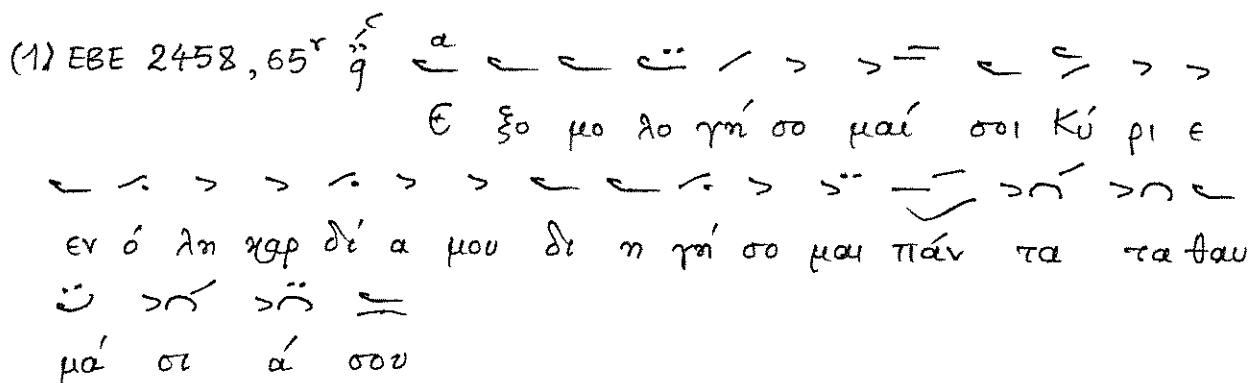 (1) EBE 2458, 65ʳ
Ε ξο μο λο γή σο μαί σοι Κύ ρι ε
εν ό λη καρ δί α μου δι η γή σο μαι πάν τα τα θαυ
μά σι ά σου